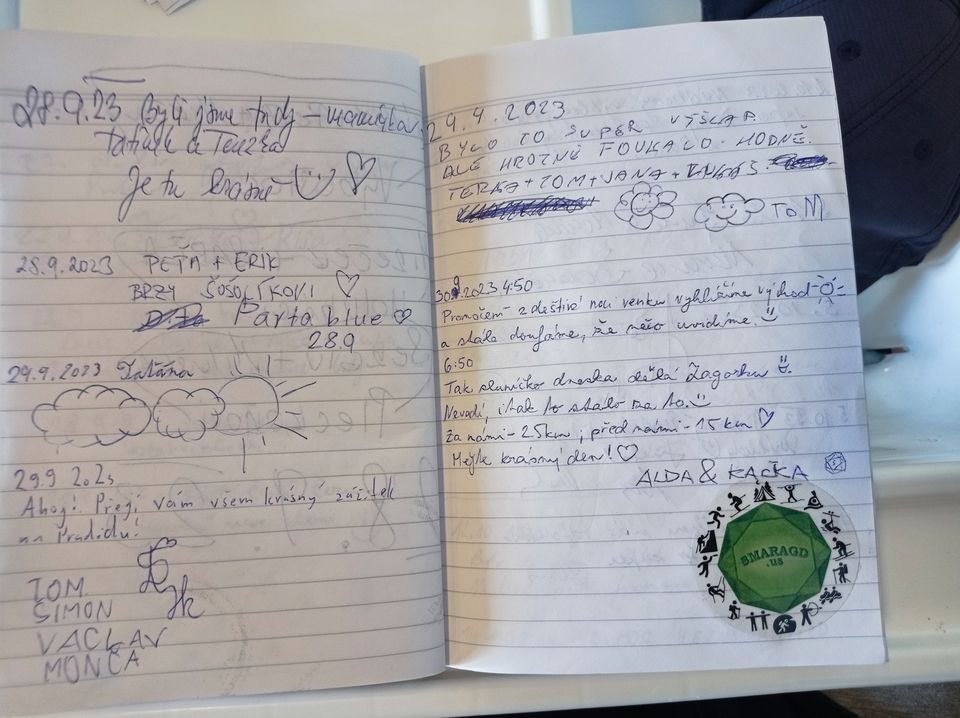 28.9.23 Byli jsme tudy - mamka
Taťínek a Terezka
Je tu krásně
28.9.2023 PEŤA + ERIK
BRZY ŠOSOLÍKOVI
Parta blue
28.9
29.9.2023 Taťána
29.9 2023
Ahoj! Přeji vám všem krásný zážitek
na Pradědu!
TOM
ŠIMON
VACLAV
MONČA
29.4.2023
BYLO TO SUPER VÝŠLAP
ALE HROZNĚ FOUKALO. HODNĚ.
TERKA+TOM+JANA+LUKÁŠ.
TOM
30.9.2023 4:50
Promočem - z deštivé noci venku vyhlížíme východ
a stále doufáme, že něco uvidíme.
6:50
Tak sluníčko dneska dělá Zagorku
Nevadí, i tak to stálo za to.
Za námi - 25km; před námi - 15km
Mějte krásný den!
ALDA & KAČKA
SMARAGD
.us